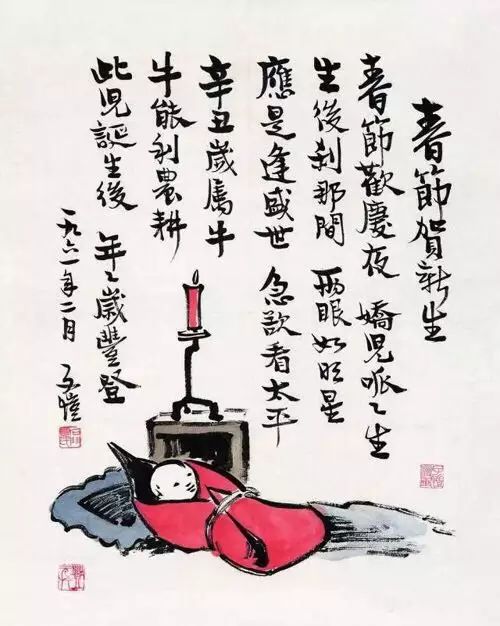 春節賀新生
春節歡慶夜 嬌兒呱々生
生後刹那間 兩眼如明星
應是逢盛世 急欲看太平
辛丑歲屬牛
牛能利農耕
此兒誕生後 年々歲豐登
一九六一年二月 子愷